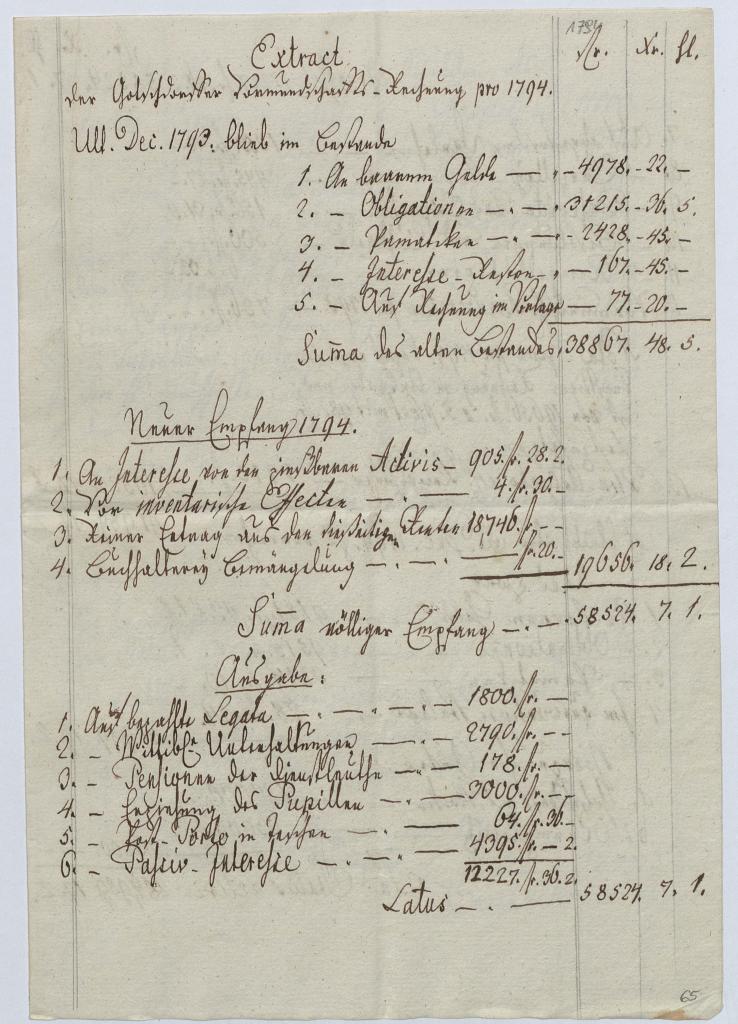 1794
Extract fr. xr. hl.
der Golschdorffer Vormundschaffts-Rechnung pro 1794.
Ult. Dec. 1793. blieb im Bestande
1. An baarem Gelde — " - 4978. - 22. -
2. - Obligationen - " - " 31215. - 36. 5.
3. - - " - " - 2428. - 45. -
4. - Interesse-Resten - " - 167. - 45. -
5. - Aus Rechnung im Vorlage — 77. - 20. -
Summa des alten Bestandes, 38867. 48. 5.
Neuer Empfang 1794.
1. An Interesse, von den zinßbaren Activis - 905. fr. 28. 2.
2. Vor inventarische Effecten - " - 4. fr. 30. -
3. Reiner Ertrag aus den Renten 18746. fr. - -
4. Buchhalterey Bemängelung - " - " - fr. 20. - 19656. 18. 2.
Summa völliger Empfang - " - 58524. 7. 1.
Ausgabe:
1. Auf bezahlte Legata - " - " - " - 1800. fr. - -
2. - Unterhaltungen - " - 2790. fr. - -
3. - Pensionen der Dienstleuthe - " - 178. fr. - -
4. - Erziehung des Pupillen - " - 3000. fr. - -
5. - Post-Porto in Teschen - " - 64. fr. 36. -
6. - Passiv-Interesse - " - " 4395. fr. - 2.
12227. fr. 36. 2.
Latus - " - 58524. 7. 1.
65